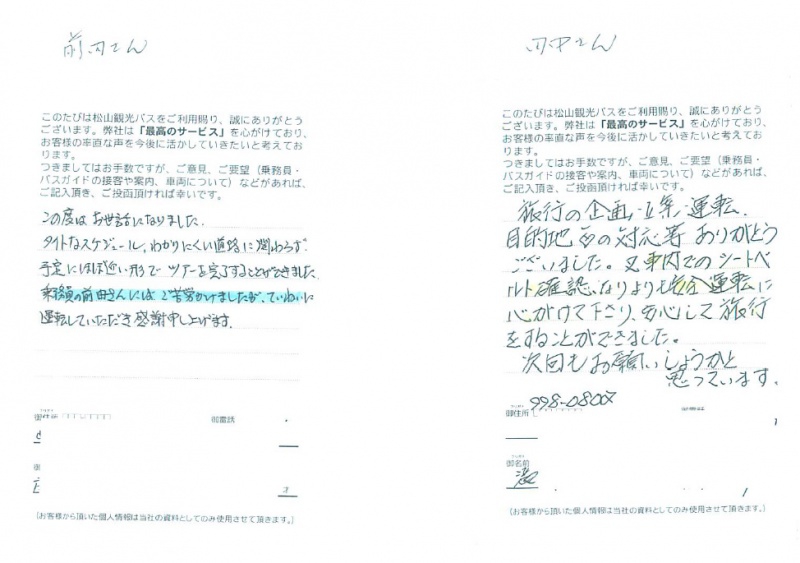 前田さん
このたびは松山観光バスをご利用賜り、誠にありがとう
ございます。弊社は「最高のサービス」を心がけており、
お客様の率直な声を今後に活かしていきたいと考えてお
ります。
つきましてはお手数ですが、ご意見、ご要望（乗務員・
バスガイドの接客や案内、車両について）などがあれば、
ご記入頂き、ご投函頂ければ幸いです。
この度はお世話になりました。
タイトなスケジュール、わかりにくい道路に関わらず
予定にほぼ近い形でツアーを完了することができました
乗務員の前田さんにはご苦労かけましたが、ていねいに
運転していただき感謝申し上げます。
御住所
御電話
（お客様から頂いた個人情報は当社の資料としてのみ使用させて頂きます。）
田中さん
このたびは松山観光バスをご利用賜り、誠にありがとう
ございます。弊社は「最高のサービス」を心がけており、
お客様の率直な声を今後に活かしていきたいと考えてお
ります。
つきましてはお手数ですが、ご意見、ご要望（乗務員・
バスガイドの接客や案内、車両について）などがあれば、
ご記入頂き、ご投函頂ければ幸いです。
旅行の企画・立案・運転、
目的地での対応等ありがとう
ございました。又車内でのシートベ
ルト確認、なりより安全運転に
心がけて下さり、安心して旅行
をすることができました。
次回もお願いしようかと
思っています。
998-0807
御住所
御電話
御名前
（お客様から頂いた個人情報は当社の資料としてのみ使用させて頂きます。）